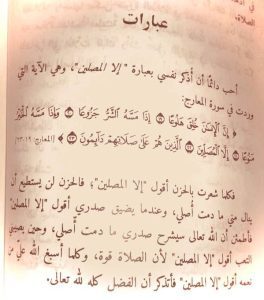 الصلاة.
عبارات
أحب دائمًا أن أذكر نفسي بعبارة "إلا المصلين"، وهي الآية التي
وردت في سورة المعارج:
﴿ إِنَّ ٱلْإِنسَٰنَ خُلِقَ هَلُوعًا ۝ إِذَا مَسَّهُ ٱلشَّرُّ جَزُوعًا ۝ وَإِذَا مَسَّهُ ٱلْخَيْرُ
مَنُوعًا ۝ إِلَّا ٱلْمُصَلِّينَ ۝ ٱلَّذِينَ هُمْ عَلَىٰ صَلَاتِهِمْ دَآئِمُونَ ۝ ﴾ [المعارج: ١٩-٢٣]
فكلما شعرت بالحزن أقول "إلا المصلين"؛ فالحزن لن يستطيع أن
ينال مني ما دمت أُصلي، وعندما يضيق صدري أقول "إلا المصلين"
فأطمئن أن الله تعالى سيشرح صدري ما دمت أُصلي، وحين يصيبني
التعب أقول "إلا المصلين" لأن الصلاة قوة، وكلما أسبغ الله عليّ من
نعمه أقول "إلا المصلين" فأتذكر أن الفضل كله لله تعالى.